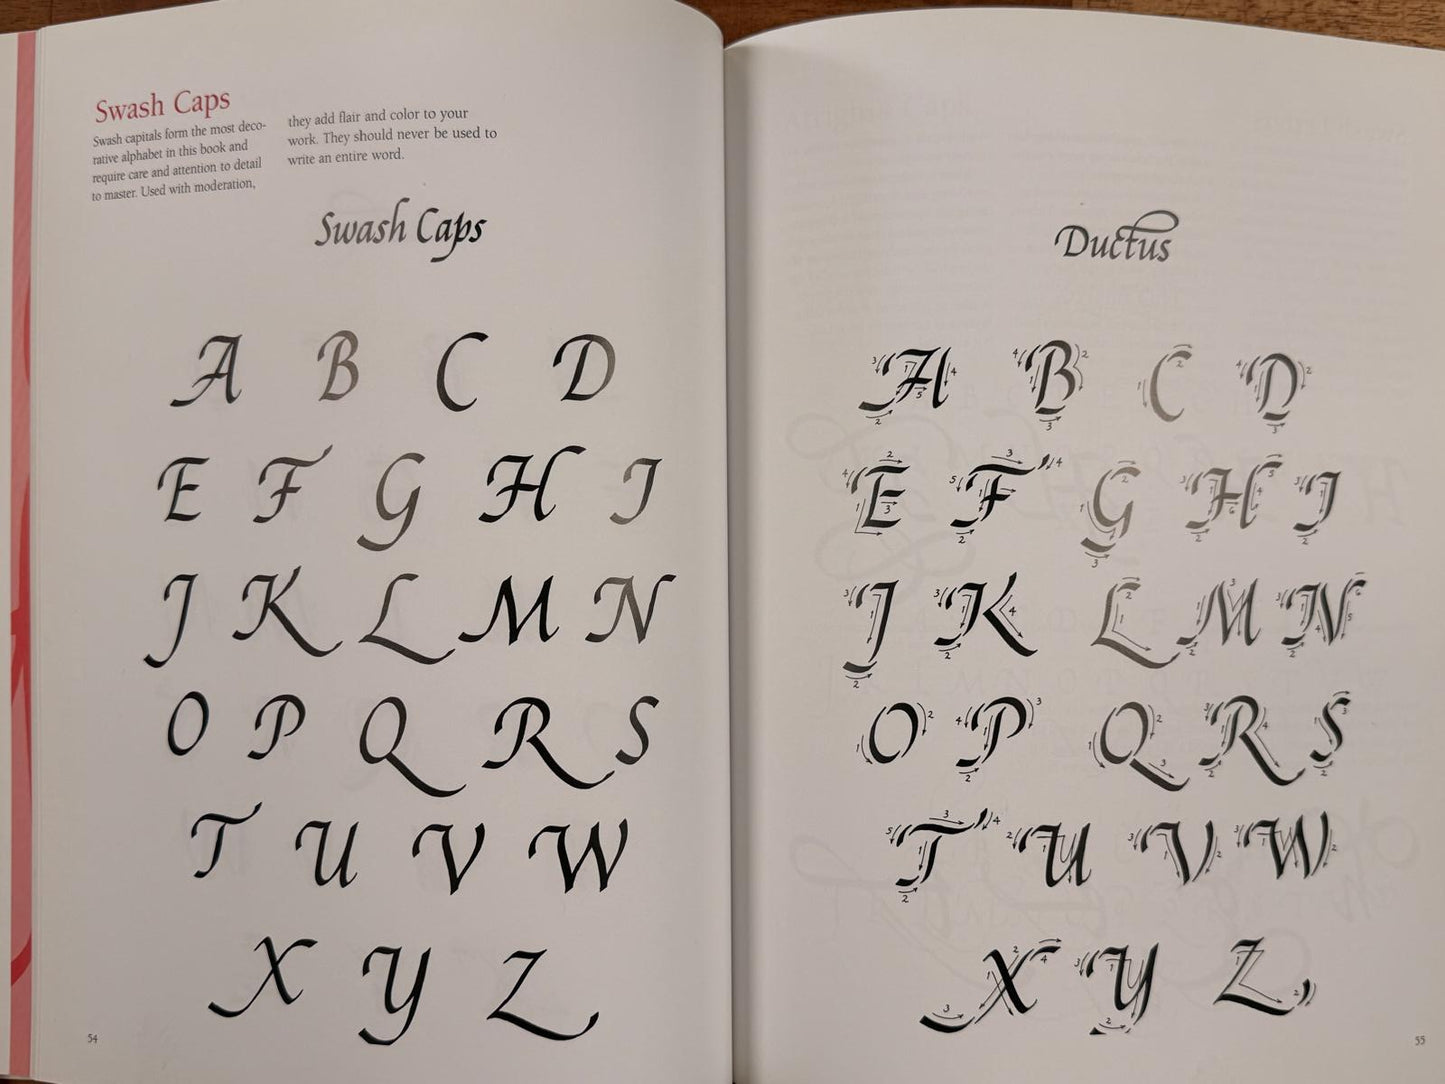 Swash Caps
Swash capitals form the most deco-
rative alphabet in this book and
require care and attention to detail
to master. Used with moderation,
they add flair and color to your
work. They should never be used to
write an entire word.
Swash Caps
A B C D
E F G H I
J K L M N
O P Q R S
T U V W
X Y Z
54
Ductus
A B C D
E F G H I
J K L M N
O P Q R S
T U V W
X Y Z
55